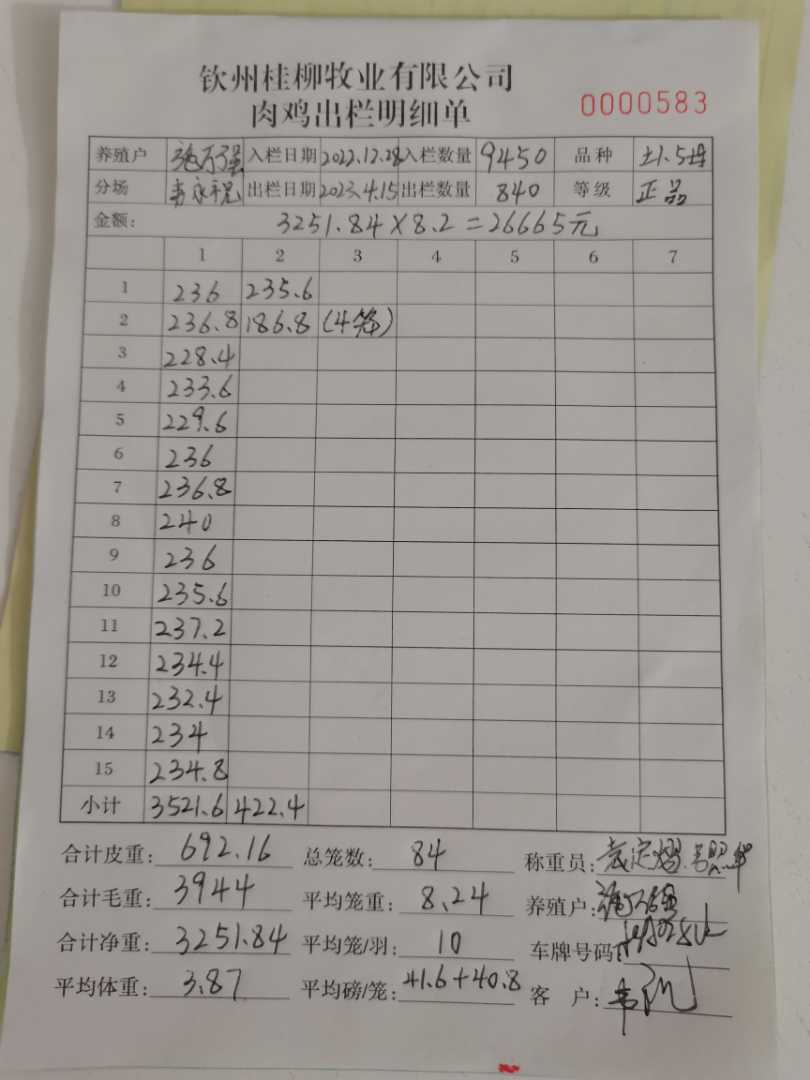 钦州桂柳牧业有限公司
肉鸡出栏明细单 0000583
养殖户 入栏日期 2022.12.28 入栏数量 9450 品种 土1.5母
分场 出栏日期 2023.4.15 出栏数量 840 等级 正品
金额: 3251.84×8.2=26665元
1 2 3 4 5 6 7
1 236 235.6
2 236.8 186.8 (4笼)
3 228.4
4 233.6
5 229.6
6 236
7 236.8
8 240
9 236
10 235.6
11 237.2
12 234.4
13 232.4
14 234
15 234.8
小计 3521.6 422.4
合计皮重: 692.16 总笼数: 84 称重员:
合计毛重: 3944 平均笼重: 8.24 养殖户:
合计净重: 3251.84 平均笼/羽: 10 车牌号码:
平均体重: 3.87 平均磅/笼: 41.6+40.8 客 户: